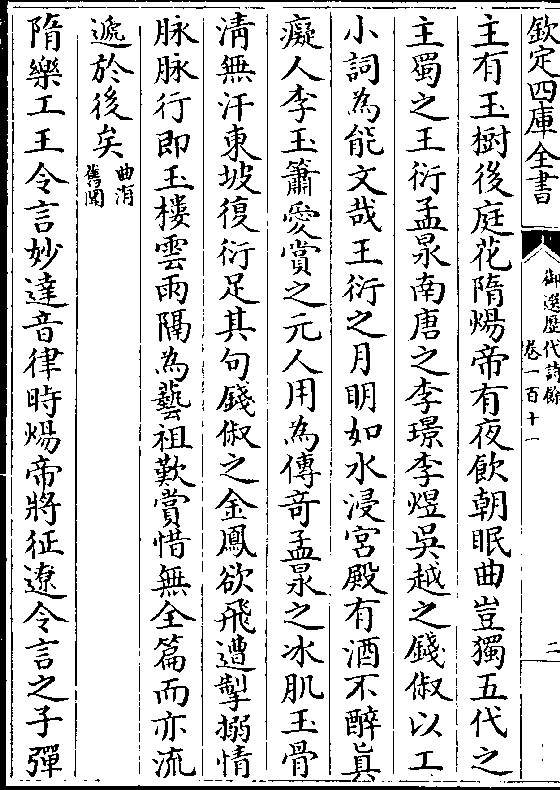 欽定四庫全書
御選歷代詩餘
卷一百十一
二
主有玉樹後庭花隋煬帝有夜飲朝眠曲豈獨五代之
主蜀之王衍孟昶南唐之李璟李煜吳越之錢俶以工
小詞為能文哉王衍之月明如水浸宮殿有酒不醉真
癡人李玉簫愛賞之元人用為傳奇孟昶之冰肌玉骨
淸無汗東坡復衍足其句錢俶之金鳳欲飛遭掣搦情
脉脉行即玉樓雲雨隔為藝祖歎賞惜無全篇而亦流
遞於後矣
曲洧
舊聞
隋樂工王令言妙達音律時煬帝將征遼令言之子彈